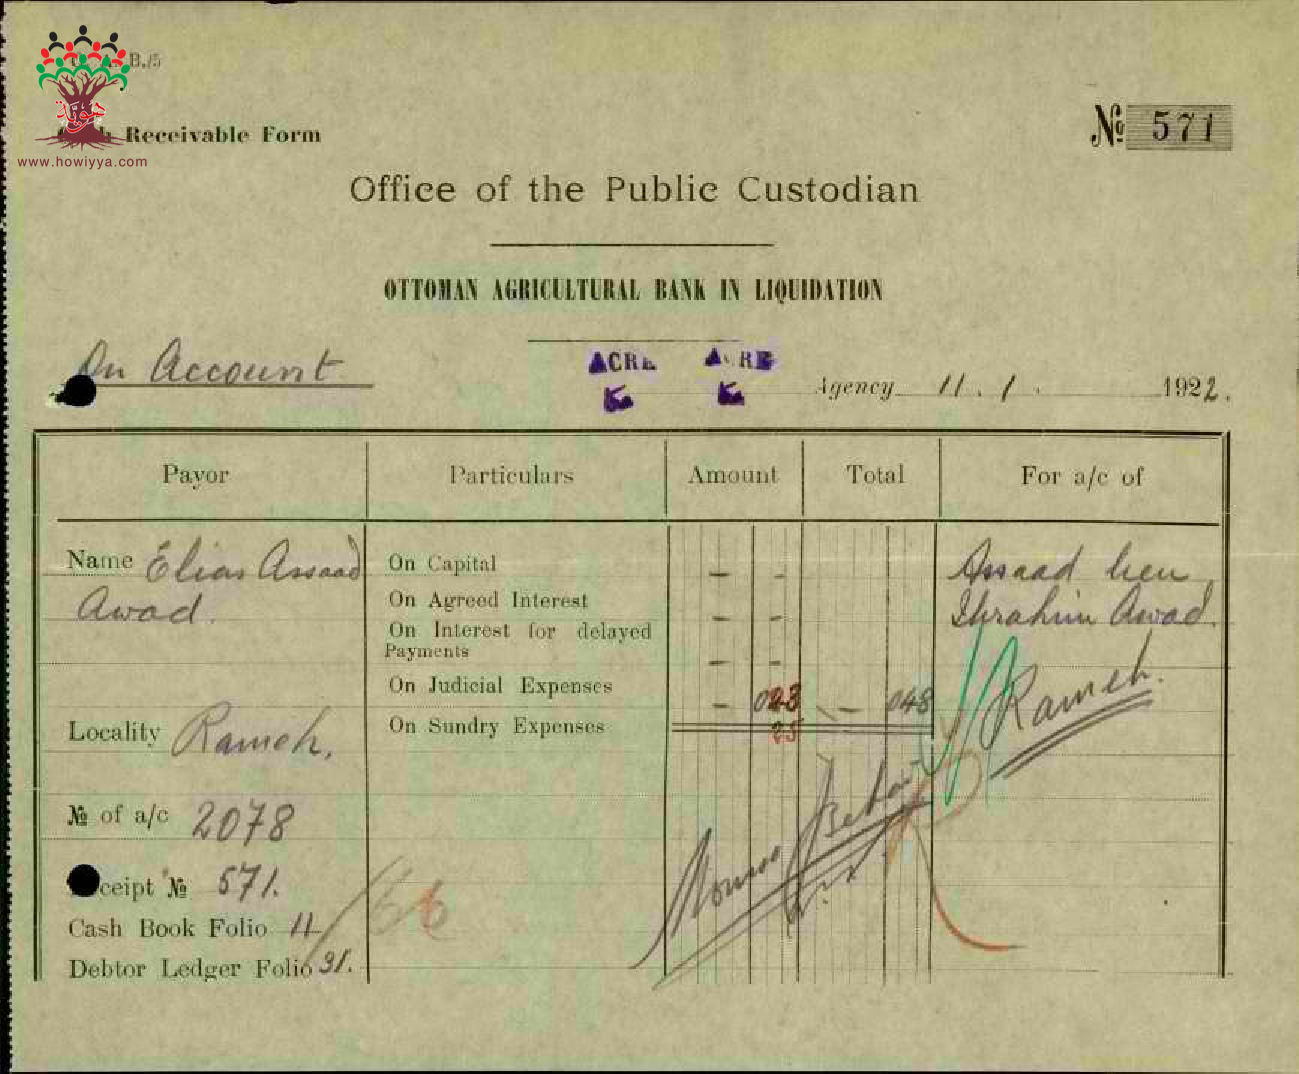 B./5
هوية
www.howiyya.com
Receivable Form
№ 571
Office of the Public Custodian
OTTOMAN AGRICULTURAL BANK IN LIQUIDATION
On Account
ACRE ACRE
Agency 11. 1. 1922.
Payor Particulars Amount Total For a/c of
Name Elias Assaad
Awad.
On Capital — -
On Agreed Interest — -
On Interest for delayed
Payments — -
On Judicial Expenses — 048
On Sundry Expenses 25
Assaad ben
Ibrahim Awad.
Rameh.
Locality Rameh.
№ of a/c 2078
ceipt № 571.
Cash Book Folio 11
Debtor Ledger Folio 31.
66